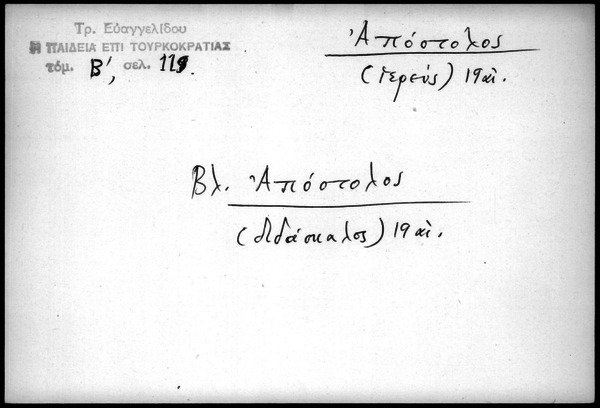 Τρ. Εὐαγγελίδου
Η ΠΑΙΔΕΙΑ ΕΠΙ ΤΟΥΡΚΟΚΡΑΤΙΑΣ
τόμ. Β', σελ. 119
Ἀπόστολος
(ἱερεύς) 19 αἰ.
Βλ. Ἀπόστολος
(διδάσκαλος) 19 αἰ.